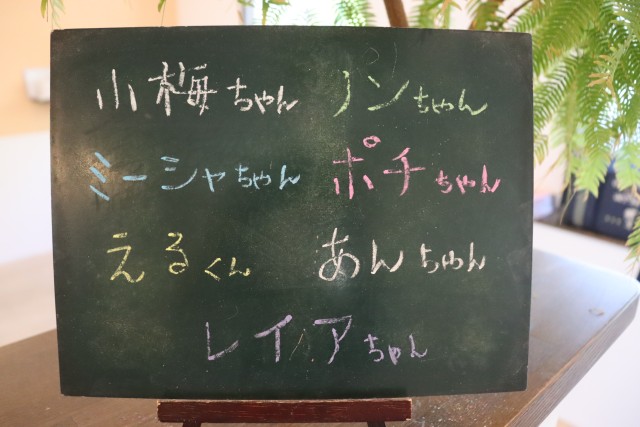 小梅ちゃん ノンちゃん
ミーシャちゃん ポチちゃん
えるくん あんちゃん
レイアちゃん